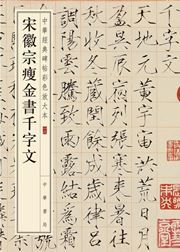 中華經典碑帖彩色放大本
宋徽宗瘦金書千字文
中華書局
千字文
天地玄黃宇宙洪荒日月
盈昃辰宿列張寒來暑往
秋收冬藏閏餘成歲律呂
調陽雲騰致雨露結為霜